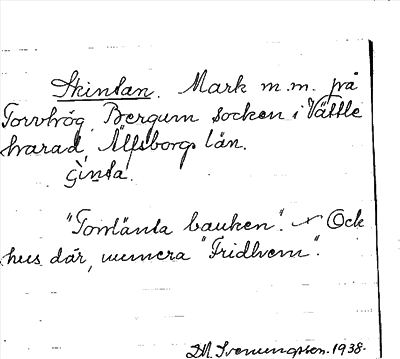 Skintan. Mark m.m. på
Torvhög, Bergum socken i Vättle
härad, Älfsborgs län.
"Tomlänta bauken". Ock
hus där, numera "Fridhem".
D.M. Svenungsson. 1938.